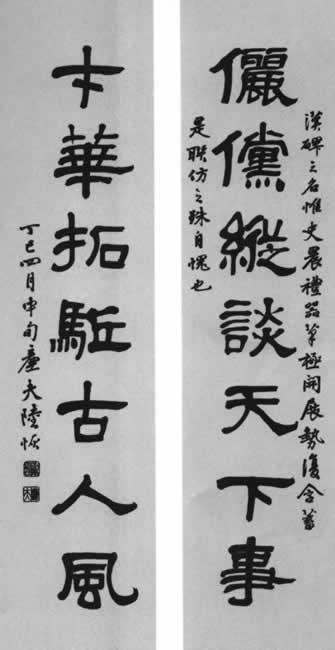 漢碑之名惟史晨禮器筆極開展勢復含蓄
儷儻縱談天下事
是聯仿之殊自愧也
才華拓駈古人風
丁巳四月中旬廉夫陸恢